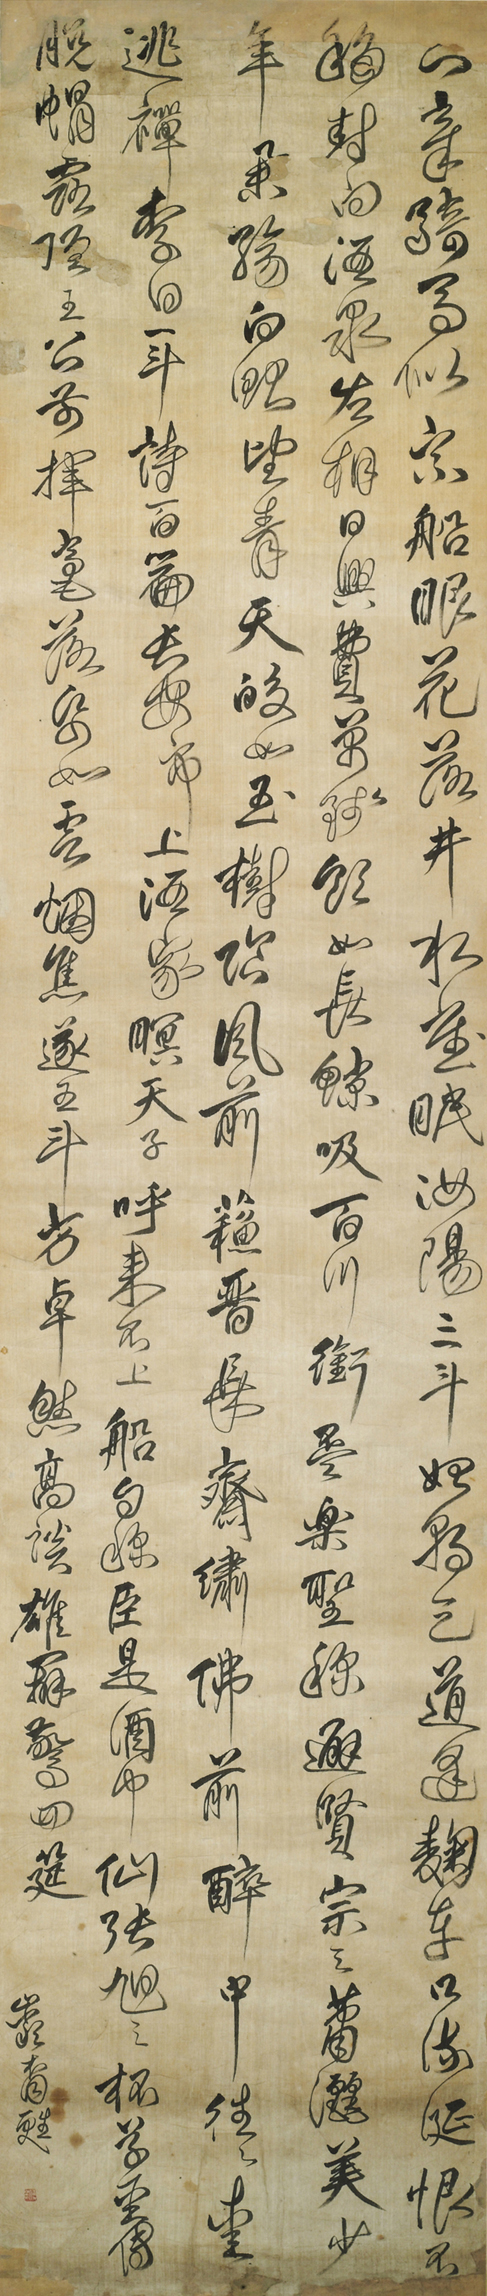 知章騎馬似乘船眼花落井水底眠汝陽三斗始朝天道逢麴車口流涎恨不
移封向酒泉左相日興費萬錢飲如長鯨吸百川銜盃樂聖稱避賢宗之蕭灑美少
年舉觴白眼望青天皎如玉樹臨風前蘇晉長齋繡佛前醉中往〻愛
逃禪李白一斗詩百篇長安市上酒家瞑天子呼來不上船自稱臣是酒中仙張旭三杯草聖傳
脫帽露頂王公前揮毫落紙如雲烟焦遂五斗方卓然高談雄辯驚四筵